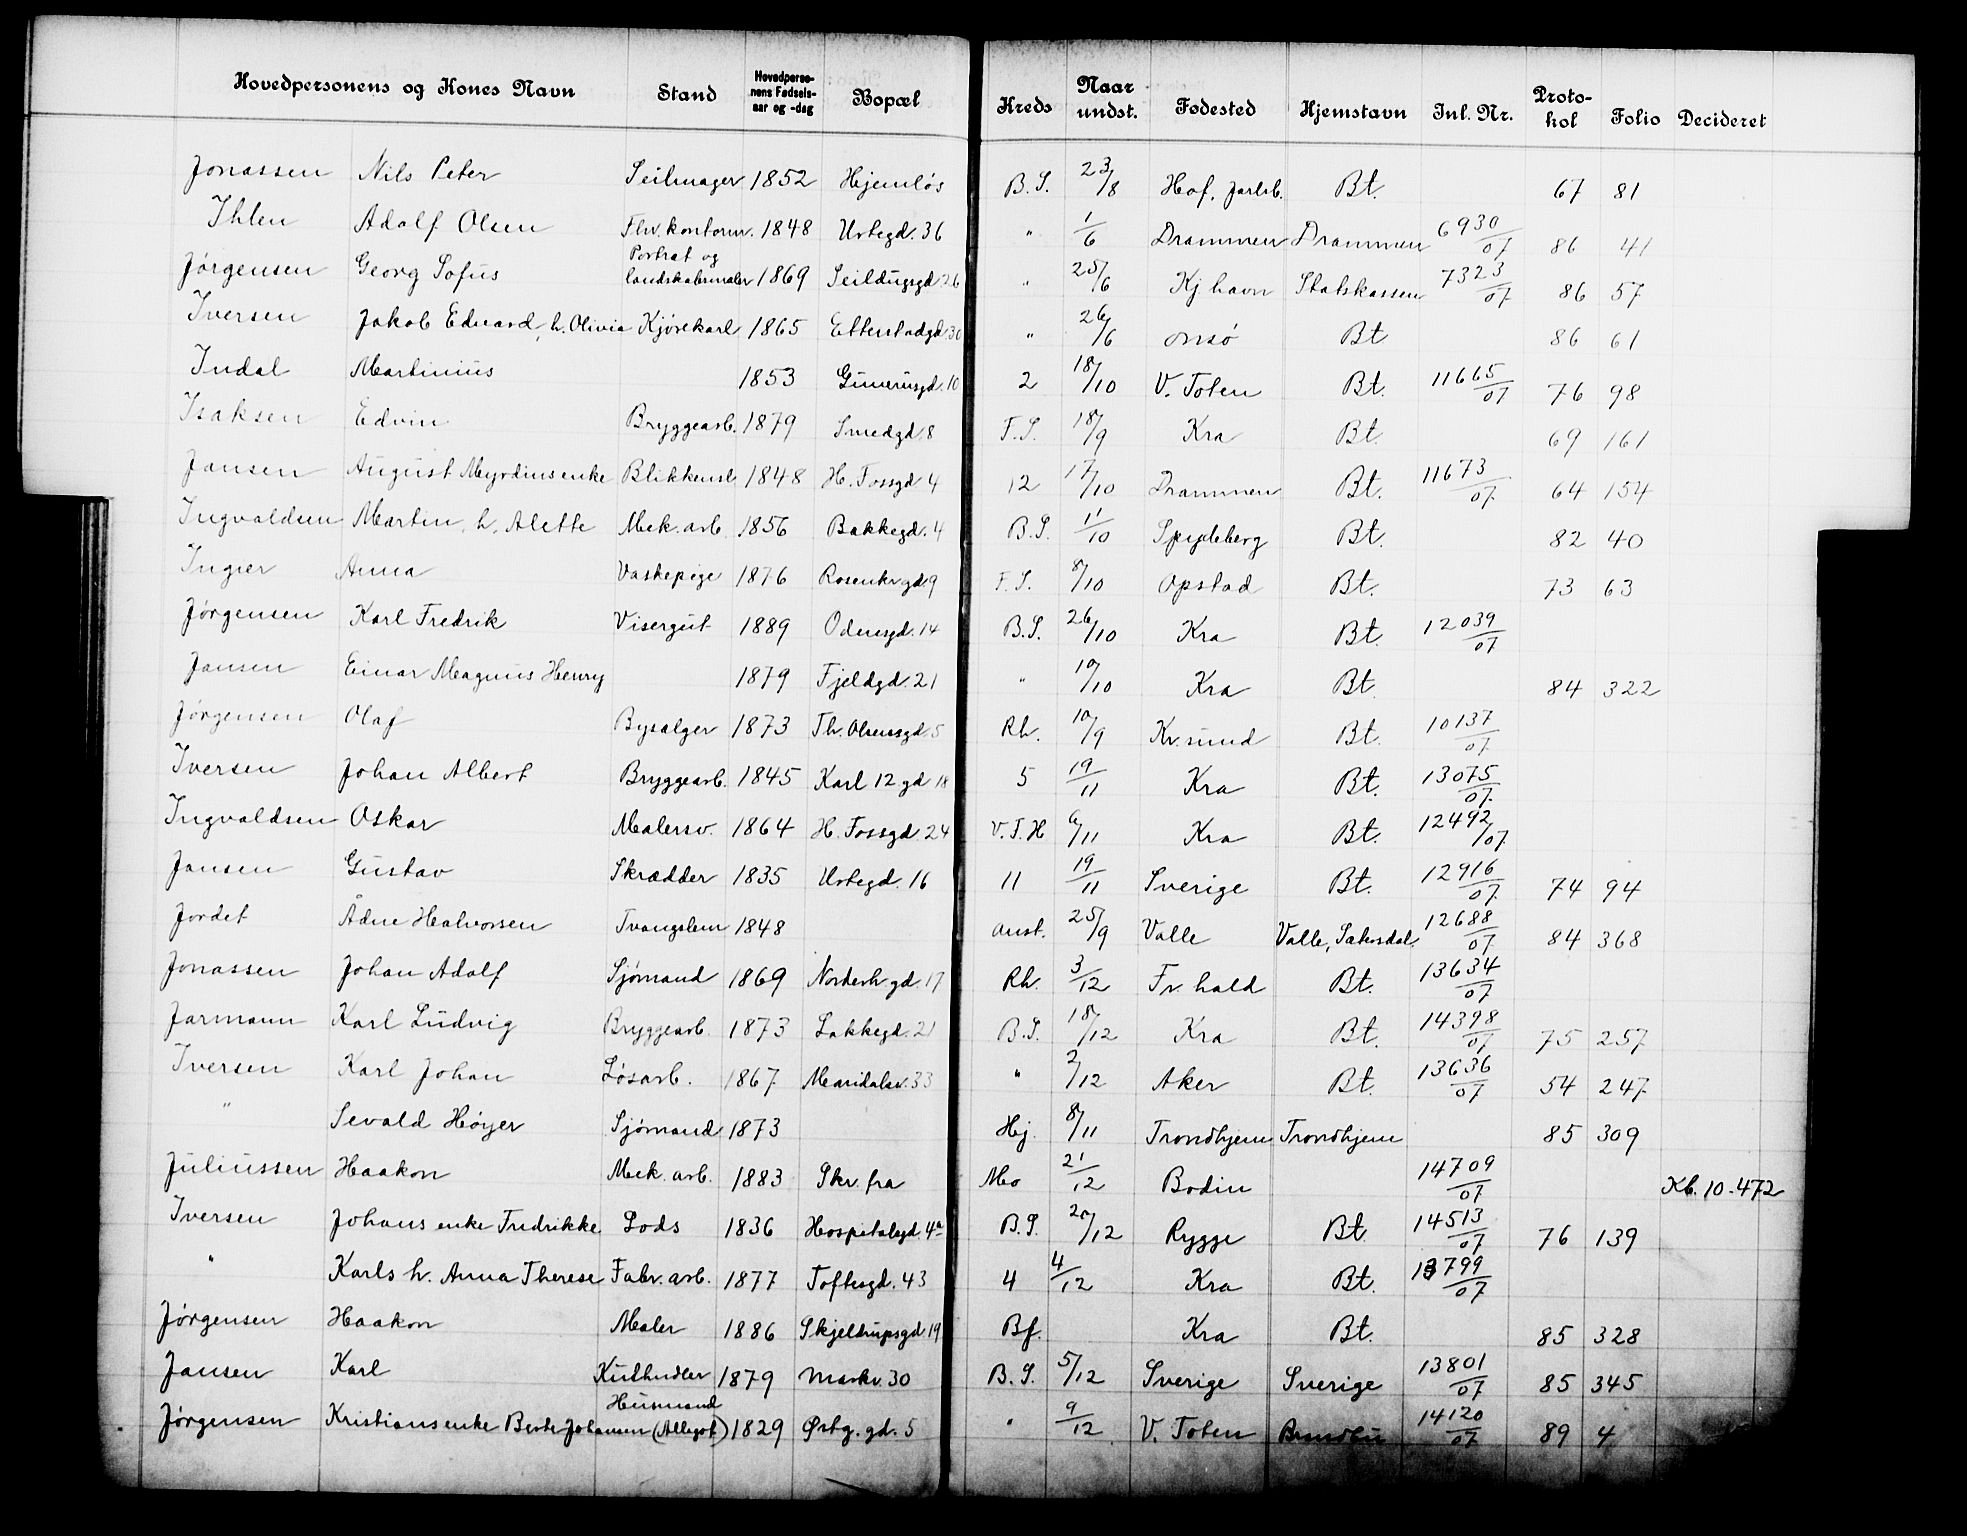 Hovedpersonens og Kones Navn Stand Hovedperso-nens Fødsels-aar og -dag Bopæl Kreds Naar undst. Fødested Hjemstavn Inl. Nr. Proto-kol Folio Decideret
Jonassen Nils Peter Seilmager 1852 Hjemløs B.S. 23/8 Hof, Jarlsb. Bt. 67 81
Ihlen Adolf Olsen Fhv. kontorm. 1848 Urtegd. 36 " 1/6 Drammen Drammen 6930/07 86 41
Jørgensen Georg Sofus Portræt og landskabsmaler 1869 Seildugsgd. 26 " 25/6 Kjhavn Statskassen 7323/07 86 57
Iversen Jakob Edvard, h. Olivia Kjørekarl 1865 Etterstadgd. 30 " 26/6 Onsø Bt 86 61
Indal Martinius 1853 Gimerusgd. 10 2 18/10 V. Toten Bt. 11665/07 76 98
Isaksen Edvin Bryggearb. 1879 Smedgd. 8 F.S. 18/9 Kra Bt. 69 161
Jansen August Myrdins enke Blikkensl. 1848 H. Fossgd 4 12 17/10 Drammen Bt. 11673/07 64 154
Ingvaldsen Martin, h. Alette Mek. arb. 1856 Bakkegd. 4 B.S. 11/10 Spydeberg Bt. 82 40
Ingier Anna Vaskepige 1876 Rosenkr gd 9 F.S. 8/10 Opstad Bt. 73 63
Jørgensen Karl Fredrik Visergut 1889 Odensgd. 14 B.S. 26/10 Kra Bt. 12039/07
Jansen Einar Magnus Henry 1879 Fjeldgd. 21 " 10/10 Kra Bt. 84 322
Jørgensen Olaf Bysalger 1873 Th. Olsensgd. 5 Rh. 10/9 Kr.sund Bt. 10137/07
Iversen Johan Albert Bryggearb. 1845 Karl 12 gd 18 5 19/11 Kra Bt. 13075/07.
Ingvaldsen Oskar Malersv. 1864 H. Fossgd. 24 V.F.H 6/11 Kra Bt. 12492/07.
Jansen Gustav Skrædder 1835 Urtegd. 16 11 19/11 Sverige Bt. 12916/07. 74 94
Jordet Ådne Halvorsen Tvangslem 1848 Anst. 25/9 Valle Valle, Sætersdal. 12688/07 84 368
Jonassen Johan Adolf Sjømand 1869 Norderh gd. 17 Rh. 3/12 Fr. hald Bt. 13634/07
Jarmann Karl Ludvig Bryggearb. 1873 Lakkegd. 21 B.S. 18/12 Kra Bt. 14398/07 75 257
Iversen Karl Johan Løsarb. 1867 Maridalsv. 33 " 2/12 Aker Bt. 13636/07 54 247
" Sevald Høyer Sjømand 1873 Hj. 8/11 Trondhjem Trondhjem 85 309
Juliussen Haakon Mek. arb. 1883 Skr. fra Mo 21/12 Bodin 14709/07 Kb. 10-472
Iversen Johans enke Fredrikke Lods 1836 Hospitalsgd. 4a B.S. 20/12 Rygge Bt. 14513/07 76 139
" Karls h. Anna Therese Fabr. arb. 1877 Toftesgd. 43 4 4/12 Kra Bt. 13799/07
Jørgensen Haakon Maler 1886 Skjeldrupsgd. 19 Bf. Kra Bt. 85 328
Jansen Karl Kulhndler 1879 Markv. 30 B.S. 5/12 Sverige Sverige 13801/07 85 345
Jørgensen Kristians enke Berte Johansen (Allegot) Husmand 1829 Østg. gd. 5 " 9/12 V. Toten Brandbu 14120/07 89 4